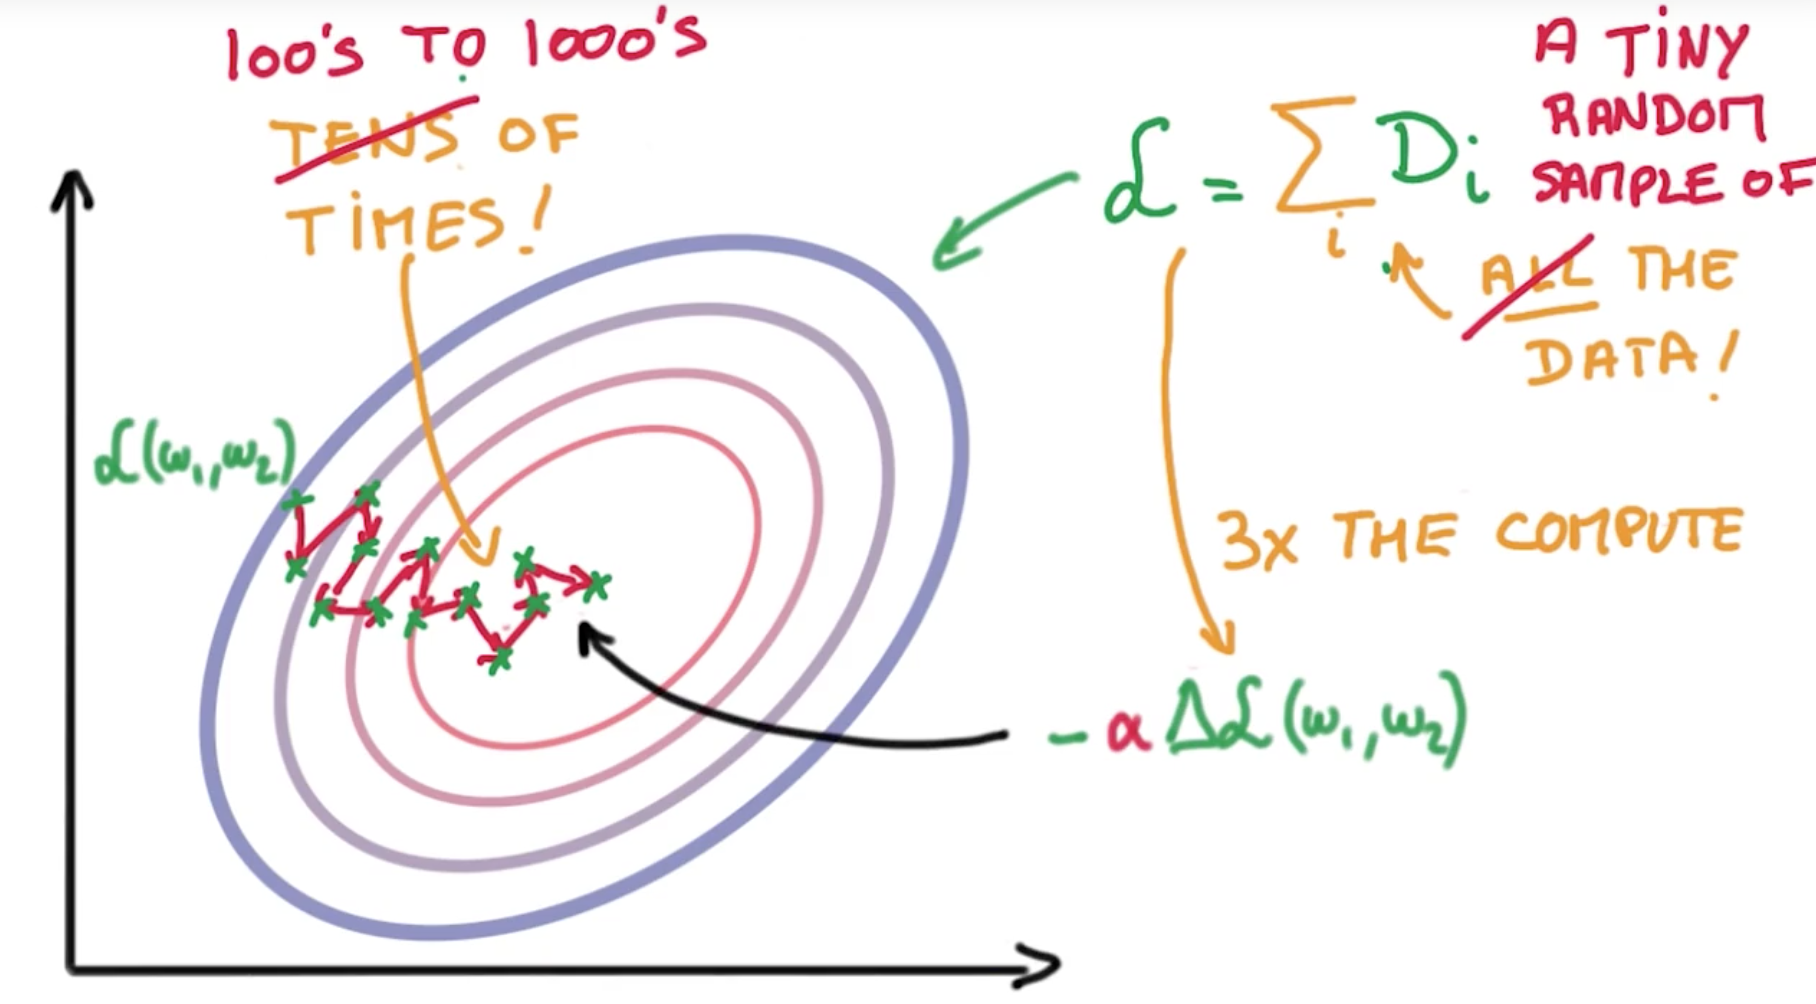 100's TO 1000's
TENS OF
TIMES!
A TINY
RANDOM
SAMPLE OF
ℒ = Σ Dᵢ
i
ALL THE
DATA!
ℒ(ω₁,ω₂)
3x THE COMPUTE
- α Δℒ(ω₁,ω₂)